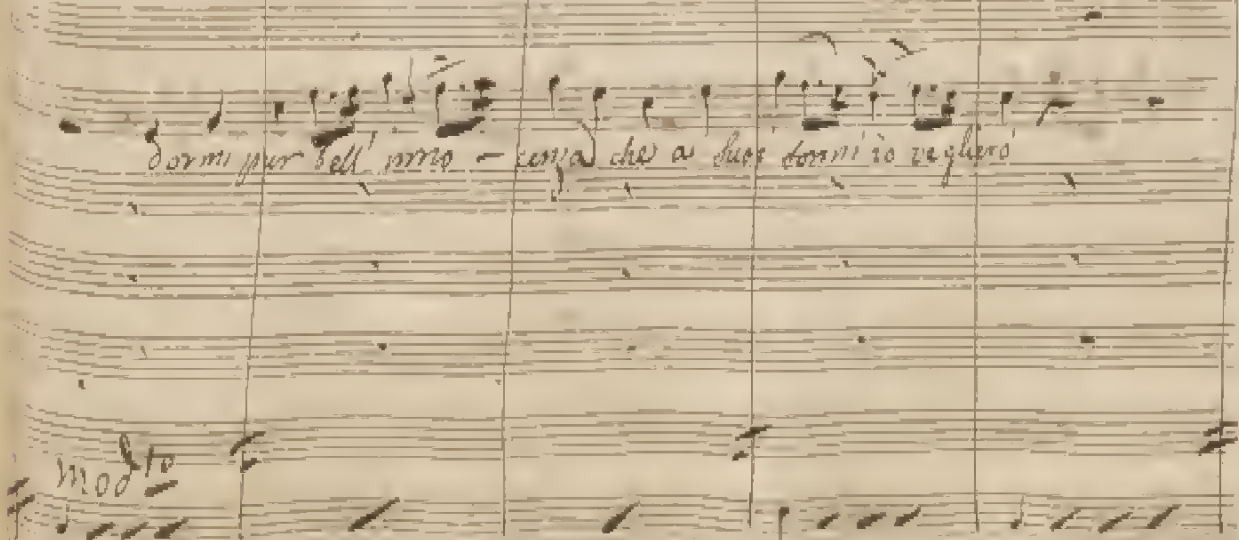 dormi pur bell' inno - cenza che a tuoi sonni io veglierò
Mod.to